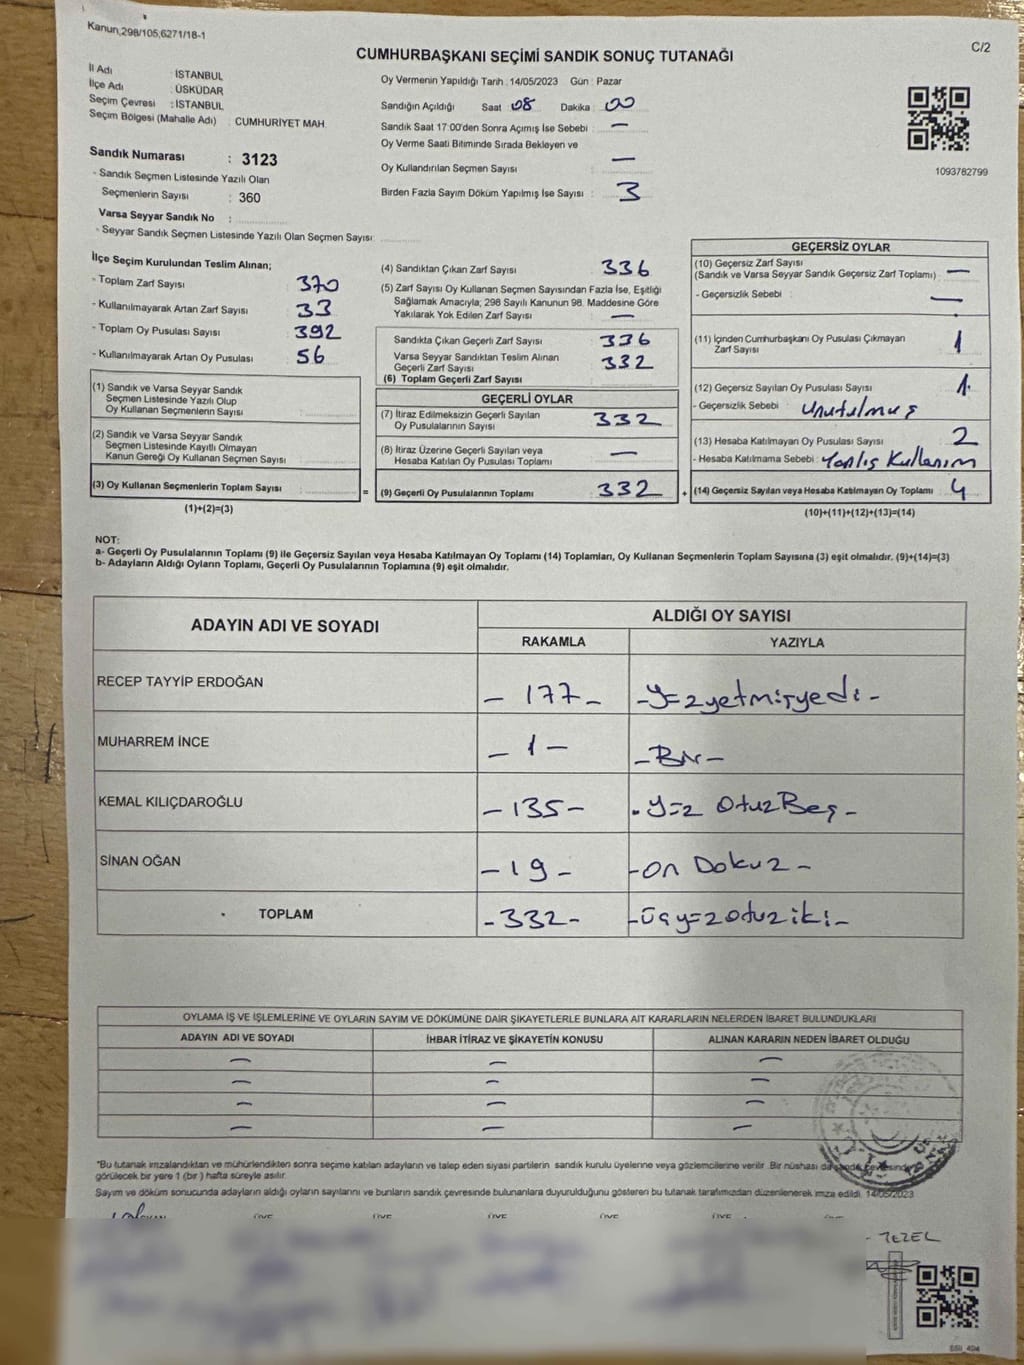 Kanun,298/105,6271/18-1
C/2
CUMHURBAŞKANI SEÇİMİ SANDIK SONUÇ TUTANAĞI
İl Adı : İSTANBUL
İlçe Adı : ÜSKÜDAR
Seçim Çevresi : İSTANBUL
Seçim Bölgesi (Mahalle Adı) : CUMHURİYET MAH.
Sandık Numarası : 3123
- Sandık Seçmen Listesinde Yazılı Olan
Seçmenlerin Sayısı : 360
Varsa Seyyar Sandık No :
- Seyyar Sandık Seçmen Listesinde Yazılı Olan Seçmen Sayısı:
Oy Vermenin Yapıldığı Tarih : 14/05/2023 Gün : Pazar
Sandığın Açıldığı Saat 08 Dakika : 00
Sandık Saat 17:00'den Sonra Açımış İse Sebebi : —
Oy Verme Saati Bitiminde Sırada Bekleyen ve
Oy Kullandırılan Seçmen Sayısı —
Birden Fazla Sayım Döküm Yapılmış İse Sayısı : 3
1093782799
İlçe Seçim Kurulundan Teslim Alınan;
- Toplam Zarf Sayısı 370
- Kullanılmayarak Artan Zarf Sayısı : 33
- Toplam Oy Pusulası Sayısı : 392
- Kullanılmayarak Artan Oy Pusulası : 56
(1) Sandık ve Varsa Seyyar Sandık
Seçmen Listesinde Yazılı Olup
Oy Kullanan Seçmenlerin Sayısı :
(2) Sandık ve Varsa Seyyar Sandık
Seçmen Listesinde Kayıtlı Olmayan
Kanun Gereği Oy Kullanan Seçmen Sayısı :
(3) Oy Kullanan Seçmenlerin Toplam Sayısı :
(1)+(2)=(3)
(4) Sandıktan Çıkan Zarf Sayısı : 336
(5) Zarf Sayısı Oy Kullanan Seçmen Sayısından Fazla İse, Eşitliği
Sağlamak Amacıyla; 298 Sayılı Kanunun 98. Maddesine Göre
Yakılarak Yok Edilen Zarf Sayısı : —
Sandıkta Çıkan Geçerli Zarf Sayısı : 336
Varsa Seyyar Sandıktan Teslim Alınan
Geçerli Zarf Sayısı : 332
(6) Toplam Geçerli Zarf Sayısı :
GEÇERLİ OYLAR
(7) İtiraz Edilmeksizin Geçerli Sayılan
Oy Pusulalarının Sayısı : 332
(8) İtiraz Üzerine Geçerli Sayılan veya
Hesaba Katılan Oy Pusulası Toplamı : —
= (9) Geçerli Oy Pusulalarının Toplamı : 332
GEÇERSİZ OYLAR
(10) Geçersiz Zarf Sayısı
(Sandık ve Varsa Seyyar Sandık Geçersiz Zarf Toplamı) : —
- Geçersizlik Sebebi : —
(11) İçinden Cumhurbaşkanı Oy Pusulası Çıkmayan
Zarf Sayısı : 1
(12) Geçersiz Sayılan Oy Pusulası Sayısı : 1
- Geçersizlik Sebebi : Unutulmuş
(13) Hesaba Katılmayan Oy Pusulası Sayısı : 2
- Hesaba Katılmama Sebebi : Yanlış Kullanım
+ (14) Geçersiz Sayılan veya Hesaba Katılmayan Oy Toplamı : 4
(10)+(11)+(12)+(13)=(14)
NOT:
a- Geçerli Oy Pusulalarının Toplamı (9) ile Geçersiz Sayılan veya Hesaba Katılmayan Oy Toplamı (14) Toplamları, Oy Kullanan Seçmenlerin Toplam Sayısına (3) eşit olmalıdır. (9)+(14)=(3)
b- Adayların Aldığı Oyların Toplamı, Geçerli Oy Pusulalarının Toplamına (9) eşit olmalıdır.
ADAYIN ADI VE SOYADI
ALDIĞI OY SAYISI
RAKAMLA YAZIYLA
RECEP TAYYİP ERDOĞAN - 177 - - Yüzyetmişyedi -
MUHARREM İNCE - 1 - - Bir -
KEMAL KILIÇDAROĞLU - 135 - - Yüz OtuzBeş -
SİNAN OĞAN - 19 - - On Dokuz -
TOPLAM - 332 - - üçyüzotuziki -
OYLAMA İŞ VE İŞLEMLERİNE VE OYLARIN SAYIM VE DÖKÜMÜNE DAİR ŞİKAYETLERLE BUNLARA AİT KARARLARIN NELERDEN İBARET BULUNDUKLARI
ADAYIN ADI VE SOYADI İHBAR İTİRAZ VE ŞİKAYETİN KONUSU ALINAN KARARIN NEDEN İBARET OLDUĞU
— — —
— — —
— — —
— — —
*Bu tutanak imzalandıktan ve mühürlendikten sonra seçime katılan adayların ve talep eden siyasi partilerin sandık kurulu üyelerine veya gözlemcilerine verilir. Bir nüshası da sandık çevresinde
görülecek bir yere 1 (bir) hafta süreyle asılır.
Sayım ve döküm sonucunda adayların aldığı oyların sayılarını ve bunların sandık çevresinde bulunanlara duyurulduğunu gösteren bu tutanak tarafımızdan düzenlenerek imza edildi. 14/05/2023
ÜYE ÜYE ÜYE ÜYE ÜYE
TEZEL